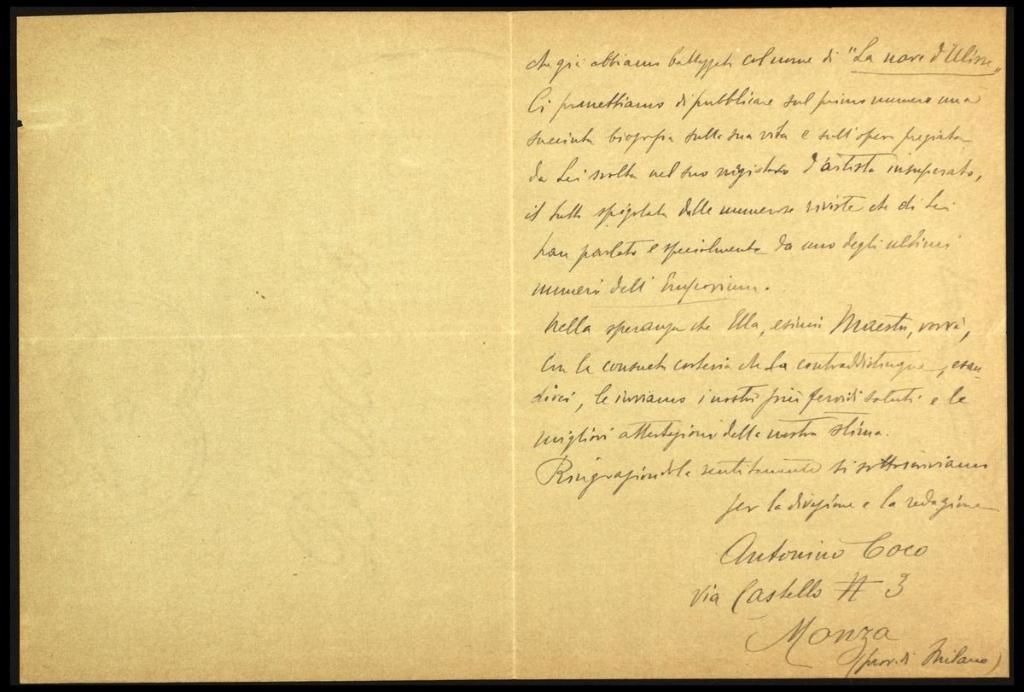 che già abbiamo battezzata col nome di "La nave d'Ulisse"
Ci promettiamo di pubblicare sul primo numero una
succinta biografia sulla sua vita e sull'opera pregiata
da Lei svolta nel suo magistero d'artista insuperato,
il tutto spigolato dalle numerose riviste che di Lei
han parlato e specialmente da uno degli ultimi
numeri dell'Emporium.
Nella speranza che Ella, esimio Maestro, vorrà,
con la consueta cortesia che La contraddistingue, esau-
dirci, le inviamo i nostri più fervidi saluti e le
migliori attestazioni della nostra stima.
Ringraziandola sentitamente ci sottoscriviamo
per la direzione e la redazione
Antonino Coco
Via Castello N 3
Monza
(prov. di Milano)